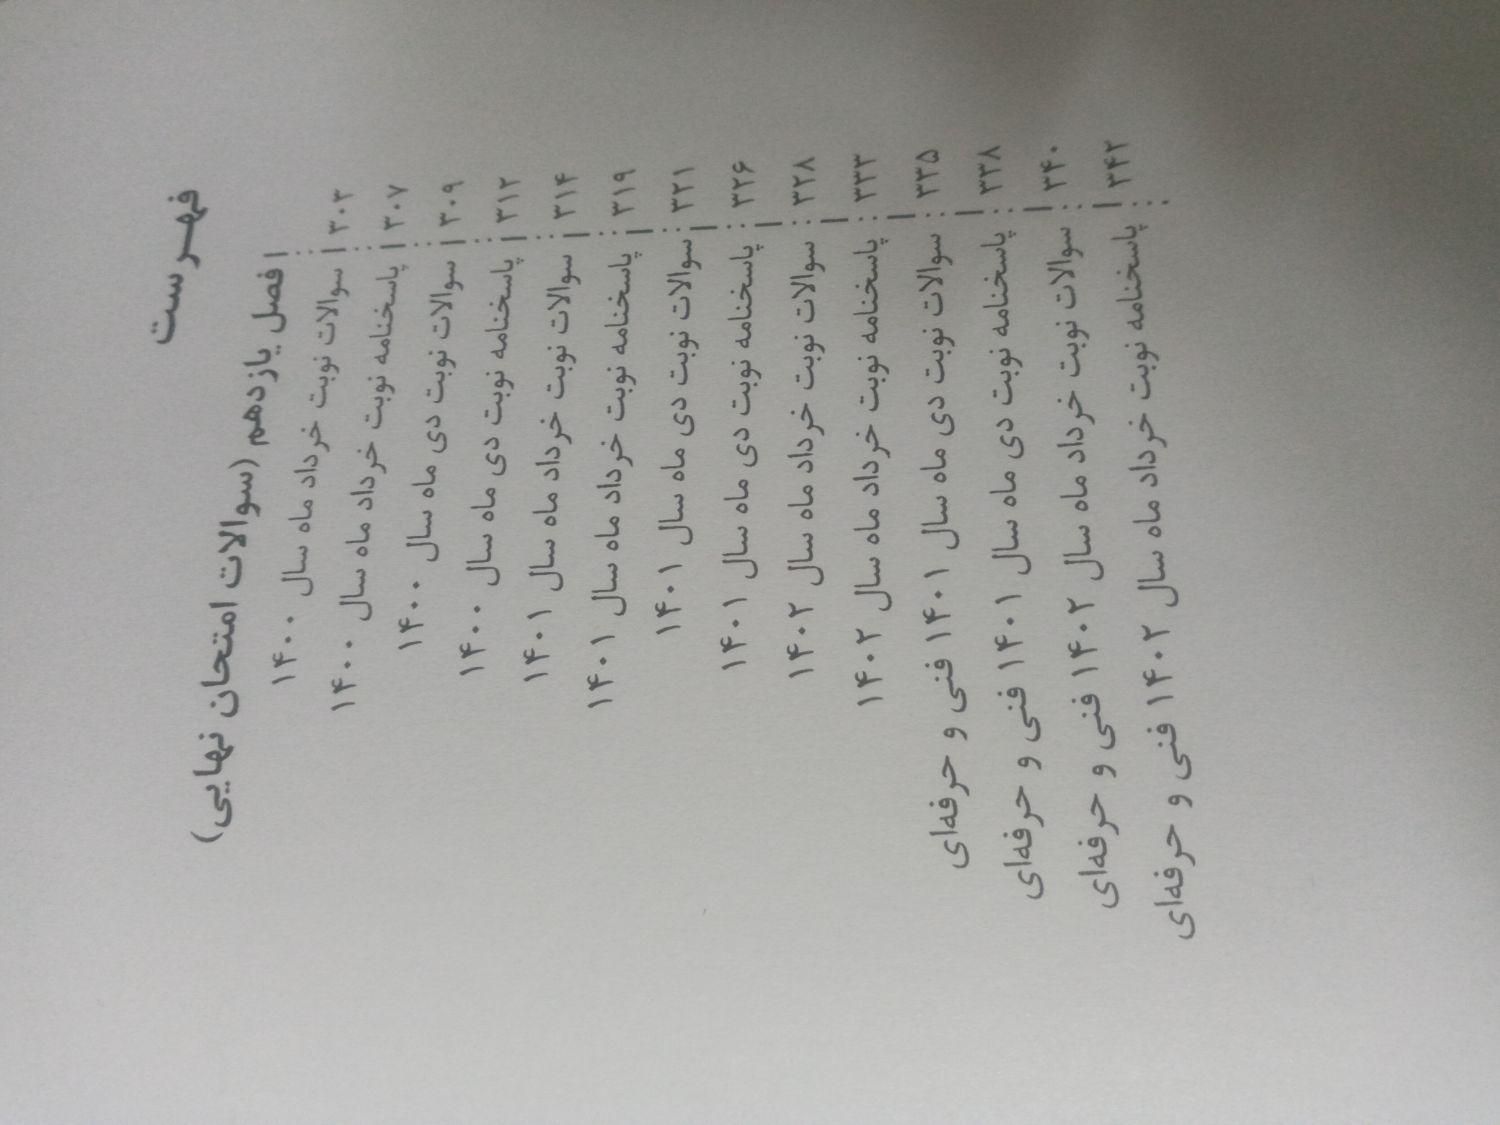 فهرست
فصل یازدهم (سوالات امتحان نهایی)
۳۰۳ سوالات نوبت خرداد ماه سال ۱۴۰۰
۳۰۷ پاسخنامه نوبت خرداد ماه سال ۱۴۰۰
۳۰۹ سوالات نوبت دی ماه سال ۱۴۰۰
۳۱۲ پاسخنامه نوبت دی ماه سال ۱۴۰۰
۳۱۴ سوالات نوبت خرداد ماه سال ۱۴۰۱
۳۱۹ پاسخنامه نوبت خرداد ماه سال ۱۴۰۱
۳۲۱ سوالات نوبت دی ماه سال ۱۴۰۱
۳۲۶ پاسخنامه نوبت دی ماه سال ۱۴۰۱
۳۲۸ سوالات نوبت خرداد ماه سال ۱۴۰۲
۳۳۳ پاسخنامه نوبت خرداد ماه سال ۱۴۰۲
۳۳۵ سوالات نوبت دی ماه سال ۱۴۰۱ فنی و حرفه‌ای
۳۳۸ پاسخنامه نوبت دی ماه سال ۱۴۰۱ فنی و حرفه‌ای
۳۴۰ سوالات نوبت خرداد ماه سال ۱۴۰۲ فنی و حرفه‌ای
۳۴۲ پاسخنامه نوبت خرداد ماه سال ۱۴۰۲ فنی و حرفه‌ای